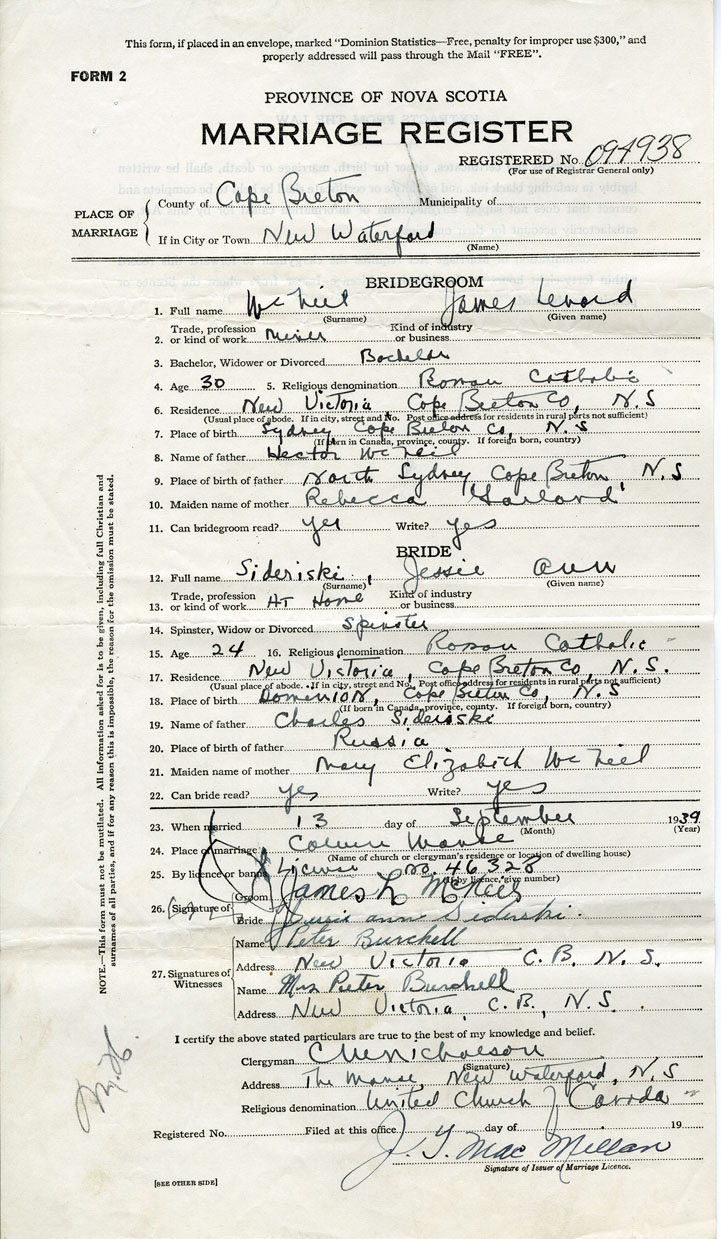 This form, if placed in an envelope, marked "Dominion Statistics—Free, penalty for improper use $300," and
properly addressed will pass through the Mail "FREE".
FORM 2
PROVINCE OF NOVA SCOTIA
MARRIAGE REGISTER
REGISTERED No. 094938
(For use of Registrar General only)
PLACE OF MARRIAGE
County of Cape Breton Municipality of
If in City or Town New Waterford
(Name)
BRIDEGROOM
1. Full name McNeil James Lenard
(Surname) (Given name)
2. Trade, profession or kind of work Miner Kind of industry or business
3. Bachelor, Widower or Divorced Bachelor
4. Age 30 5. Religious denomination Roman Catholic
6. Residence New Victoria Cape Breton Co, N.S
(Usual place of abode. If in city, street and No. Post office address for residents in rural parts not sufficient)
7. Place of birth Sydney Cape Breton Co, N.S
(If born in Canada, province, county. If foreign born, country)
8. Name of father Hector McNeil
9. Place of birth of father North Sydney Cape Breton, N.S
10. Maiden name of mother Rebecca Garland
11. Can bridegroom read? yes Write? yes
BRIDE
12. Full name Sideriski, Jessie Ann
(Surname) (Given name)
13. Trade, profession or kind of work At Home Kind of industry or business
14. Spinster, Widow or Divorced Spinster
15. Age 24 16. Religious denomination Roman Catholic
17. Residence New Victoria, Cape Breton Co, N.S.
(Usual place of abode. If in city, street and No. Post office address for residents in rural parts not sufficient)
18. Place of birth Domenion, Cape Breton Co, N.S
(If born in Canada, province, county. If foreign born, country)
19. Name of father Charles Sideriski
20. Place of birth of father Russia
21. Maiden name of mother Mary Elizabeth McNeil
22. Can bride read? yes Write? yes
23. When married 13 day of September 1939
(Month) (Year)
24. Place of marriage Manse
(Name of church or clergyman's residence or location of dwelling house)
25. By licence or banns License no. 46328
(If by licence, give number)
26. Signature of
Groom James L McNeil
Bride Jessie Ann Siderski
27. Signatures of Witnesses
Name Peter Burchell
Address New Victoria C.B. N.S.
Name Mrs Peter Burchell
Address New Victoria, C.B., N.S.
I certify the above stated particulars are true to the best of my knowledge and belief.
Clergyman Nicholson
(Signature)
Address The Manse, New Waterford, N.S
Religious denomination United Church of Canada
Registered No. Filed at this office day of 19
J. Y. MacMillan
Signature of Issuer of Marriage Licence.
[SEE OTHER SIDE]
NOTE.—This form must not be mutilated. All information asked for is to be given, including full Christian and
surnames of all parties, and if for any reason this is impossible, the reason for the omission must be stated.